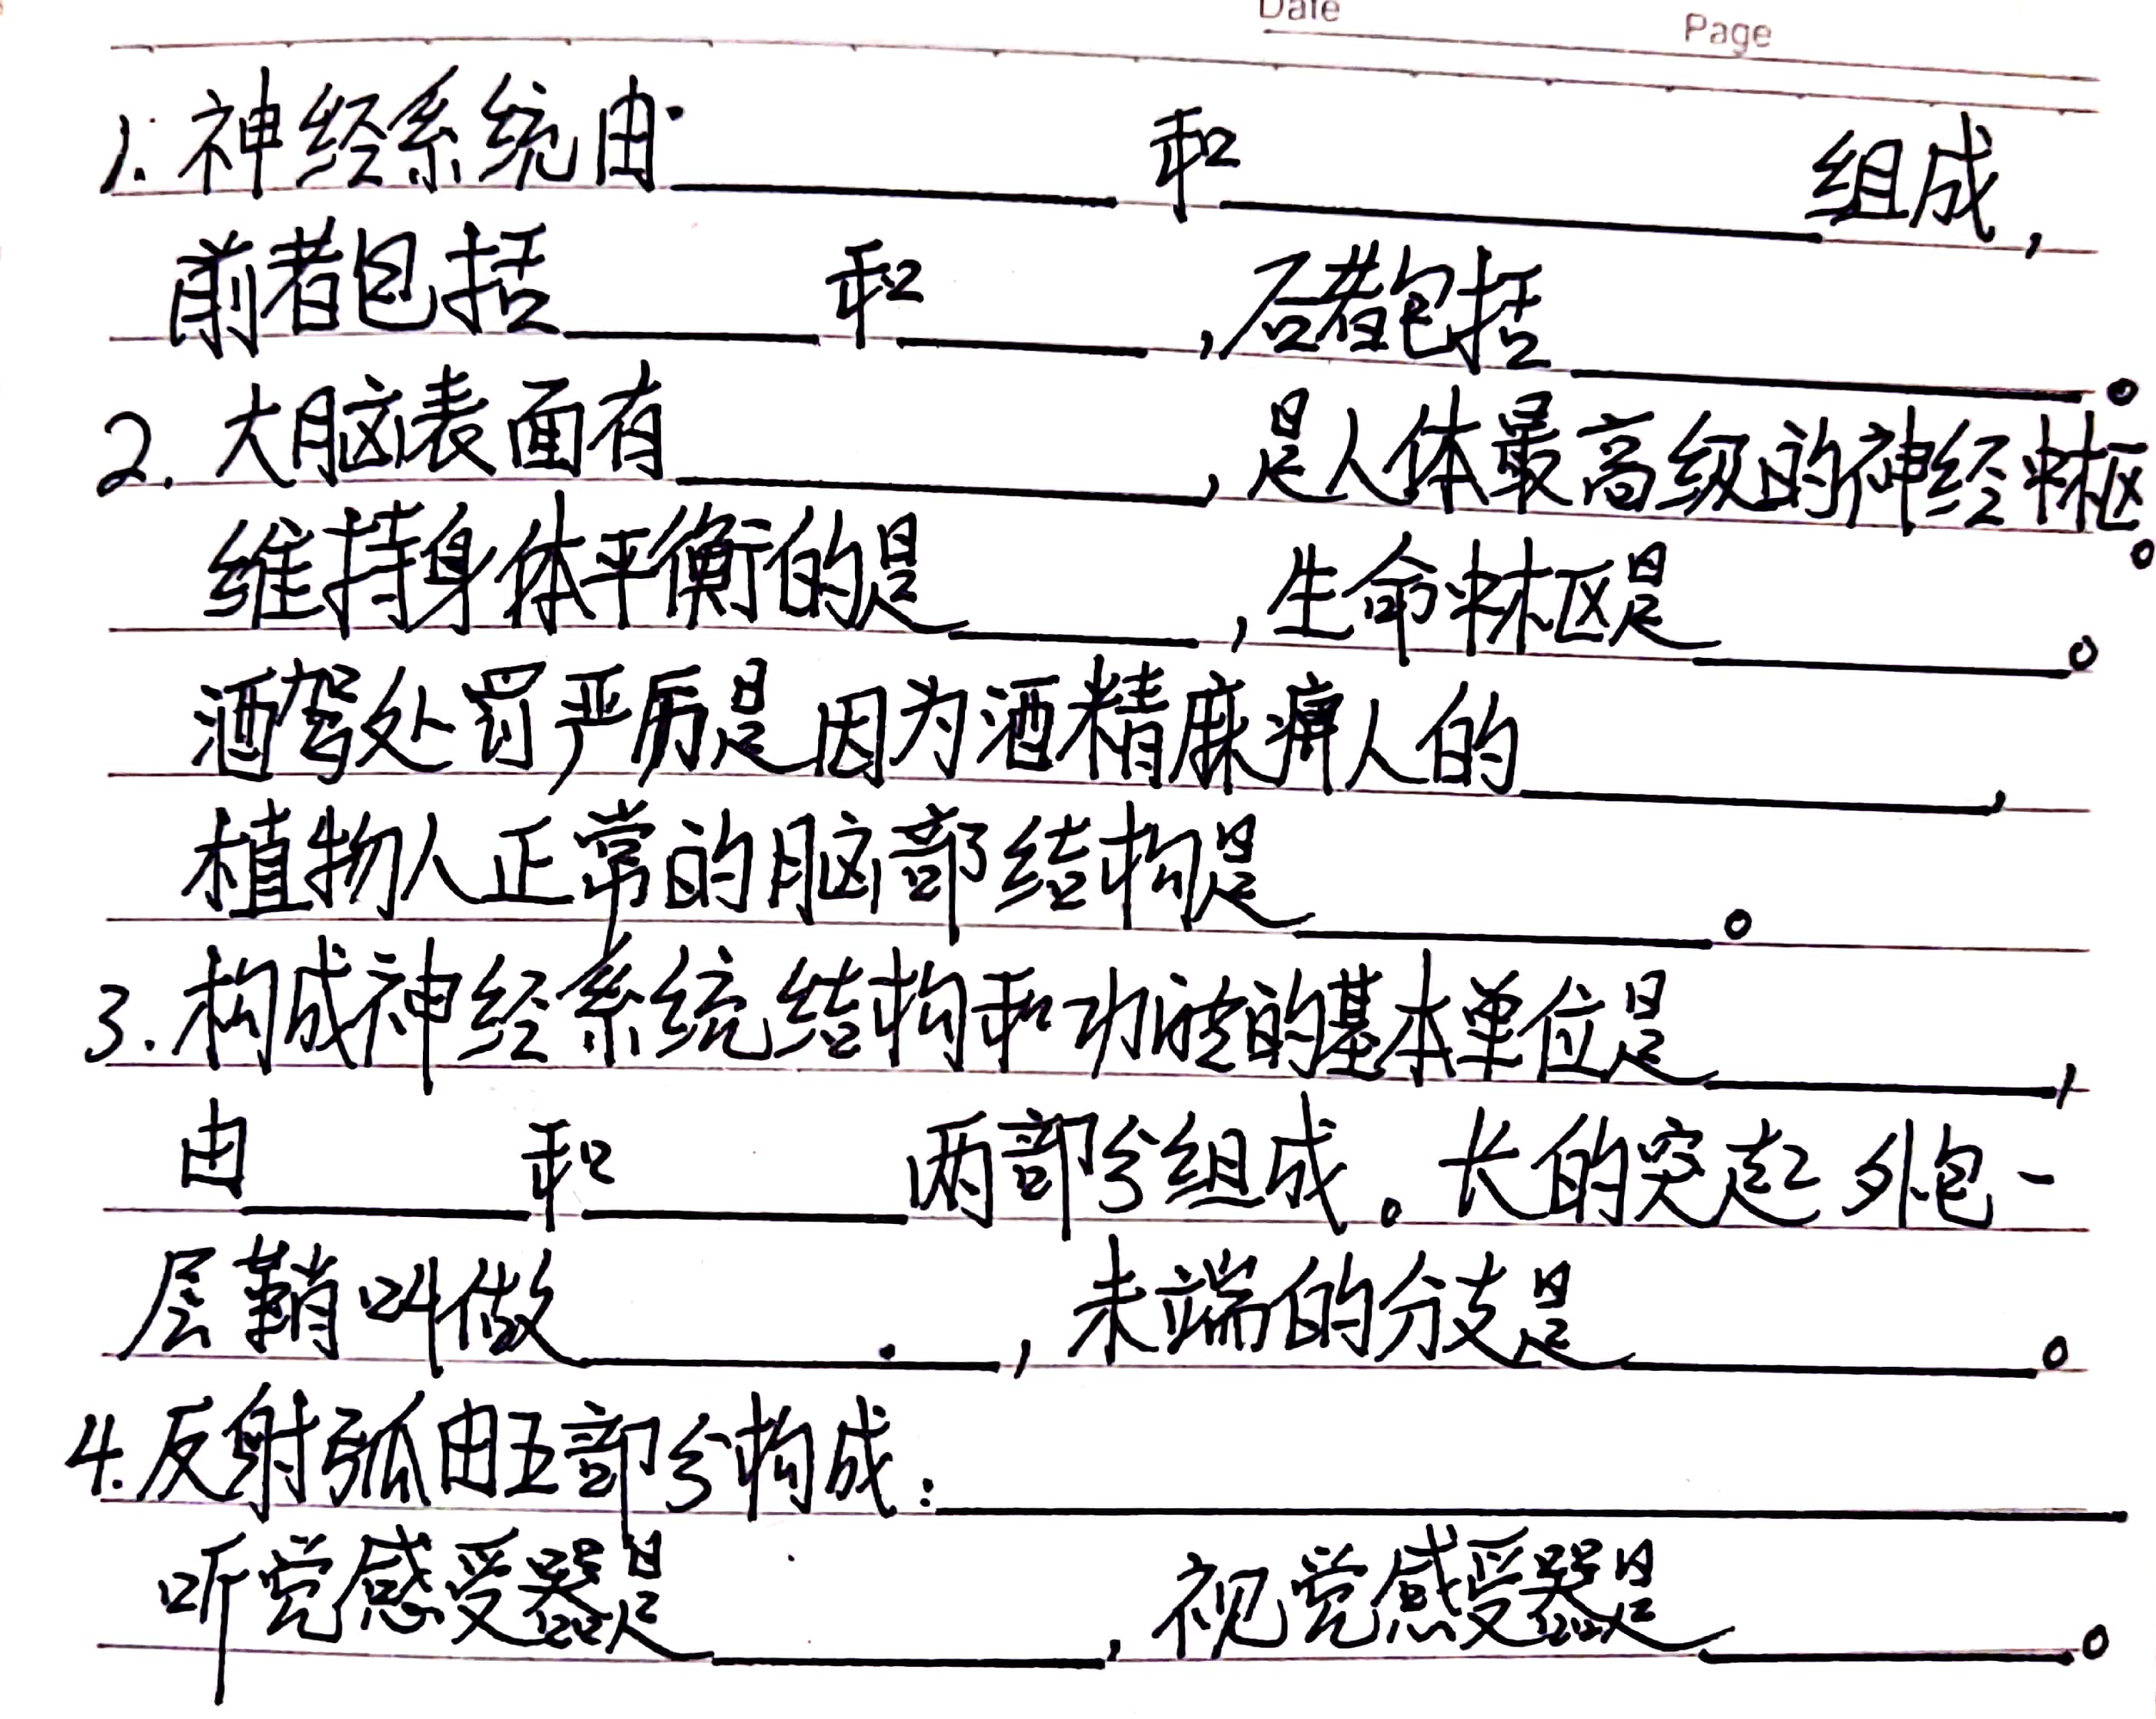 Date Page
1. 神经系统由____和____组成,
前者包括____和____,后者包括____。
2. 大脑表面有____,是人体最高级的神经中枢。
维持身体平衡的是____,生命中枢是____。
酒驾处罚严厉是因为酒精麻痹人的____,
植物人正常的脑部结构是____。
3. 构成神经系统结构和功能的基本单位是____,
由____和____两部分组成。长的突起外包一
层鞘叫做____,末端的分支是____。
4. 反射弧由五部分构成:____
听觉感受器是____,视觉感受器是____。